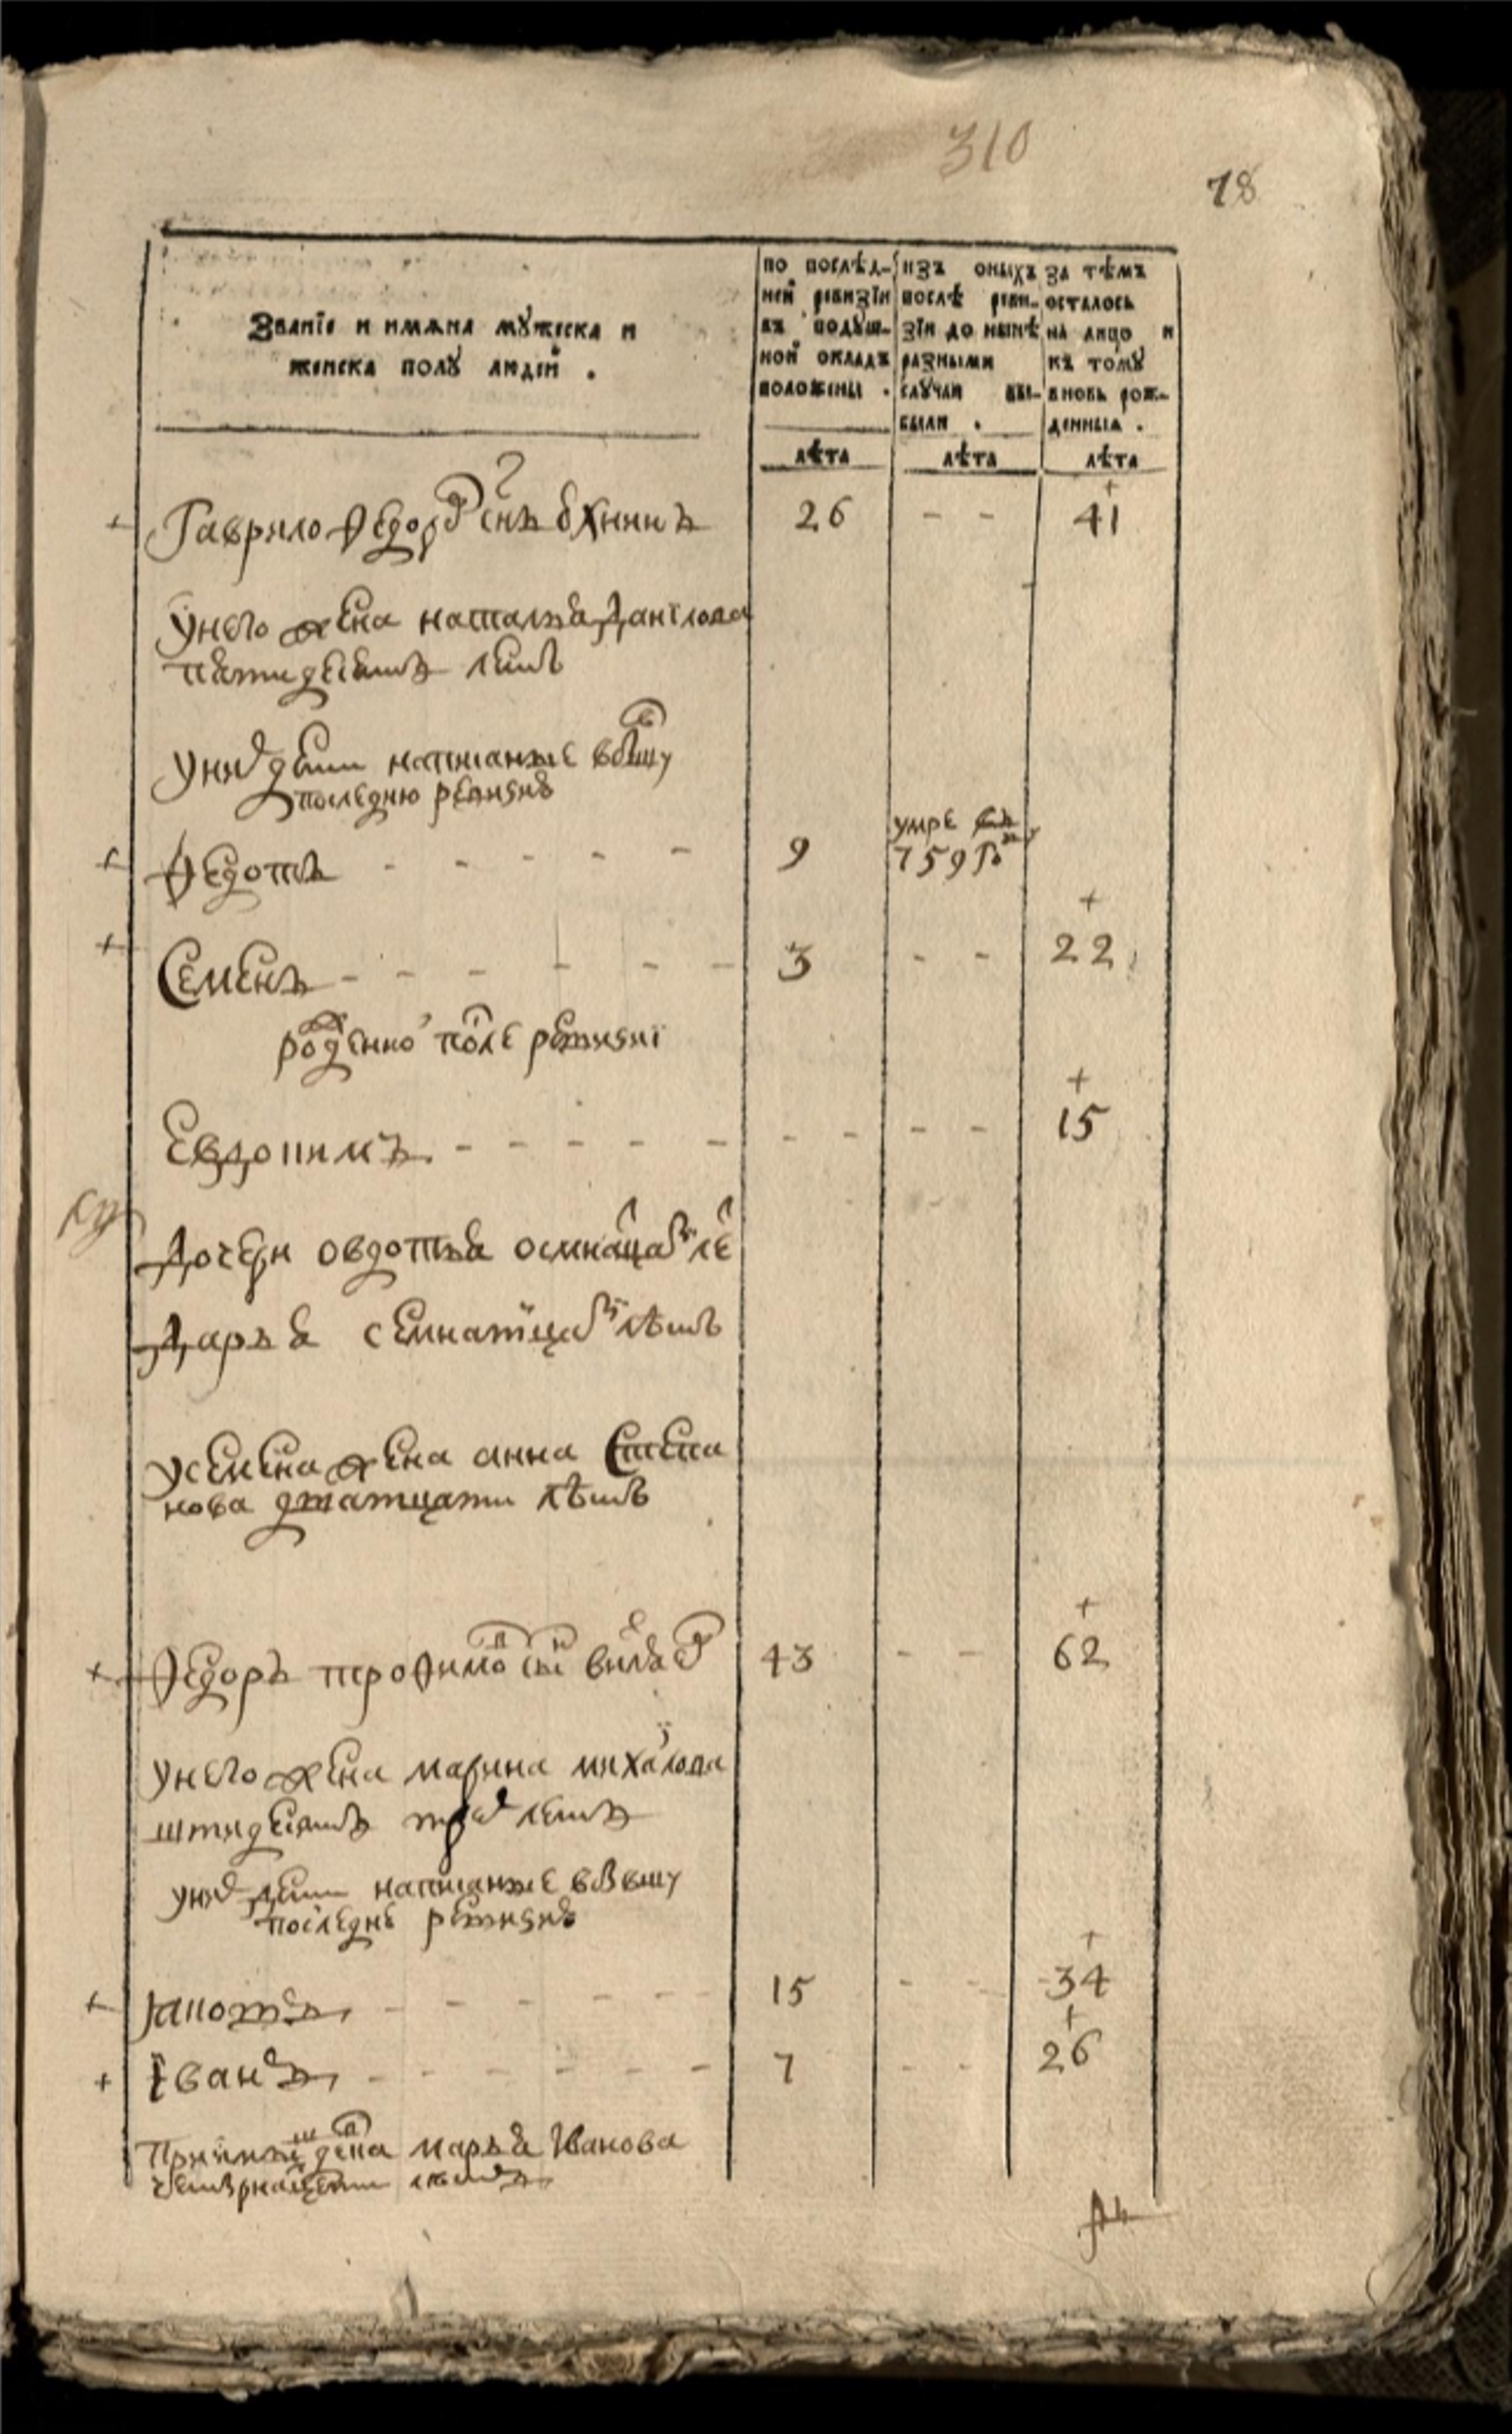 310
78
Званїе и имѧна мꙋжеска и
женска полꙋ людей .
по послѣд-
ней ревизїи
въ подꙋш-
ной окладъ
положены .
изъ оныхъ
послѣ реви-
зїи до нынѣ
разными
слꙋчаи вы-
были .
за тѣмъ
осталось
на лицо и
къ томꙋ
вновь рож-
денныя .
лѣта
лѣта
лѣта
Гаврило Ѳедоров снъ 26 - - 41
У него жена наталья данїлова
пятидесятъ летъ
У них дети написанные в бывшу
последню ревизию
Ѳедотъ - - - - - 9 умре
759 г
Семенъ - - - - - - 3 - - 22
рожденно после ревизиї
Евдонимъ - - - - - - - - - 15
Дочери овдотья осмнацати ле
Дарья семнатцати лѣтъ
У семена жена анна степа
нова дватцати лѣтъ
Ѳедоръ троѳимов сын 43 - - 62
У него жена марина михаилова
штидесятъ трех летъ
У них дети написанные в бывшу
последню ревизию
15 - - 34
Їванъ - - - - - - 7 - - 26
девка марья Иванова
четырнацети летъ